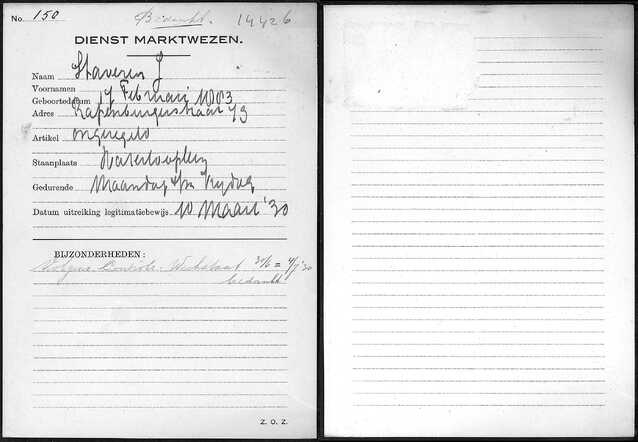 No. 150 Bedankt. 14426
DIENST MARKTWEZEN.
Naam Staveren J
Voornamen
Geboortedatum 17 Februari 1883
Adres Rapenburgerstraat 73
Artikel ongeregeld
Staanplaats Waterlooplein
Gedurende Maandag t/m Vrijdag
Datum uitreiking legitimatiebewijs 10 Maart '30
BIJZONDERHEDEN:
Volgens Controle Weekstaat 30/6 = 4/7 '30
bedankt
Z. O. Z.